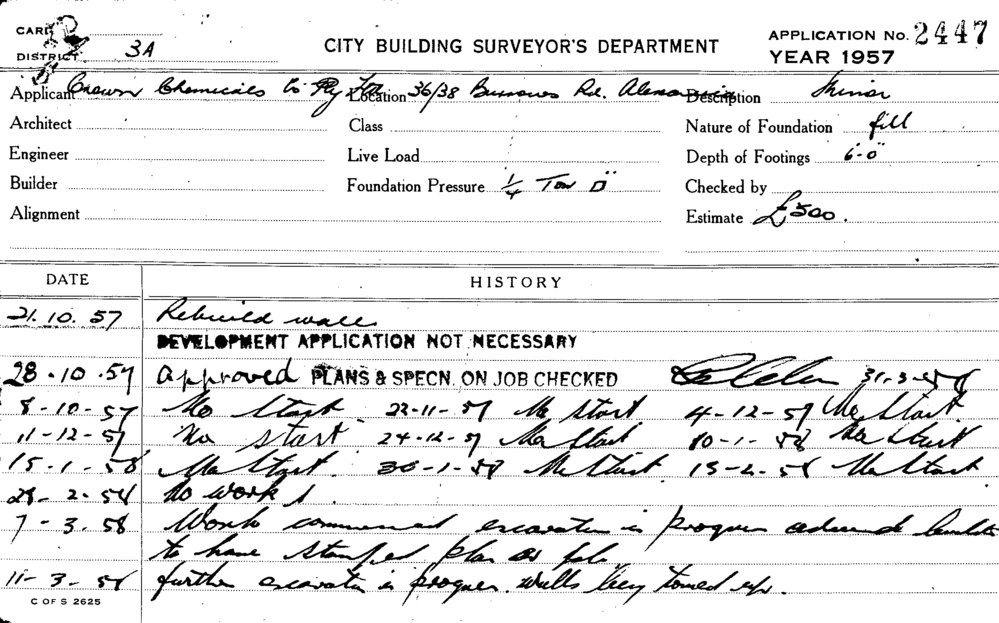 CARD
DISTRICT 3A
CITY BUILDING SURVEYOR'S DEPARTMENT
APPLICATION No. 2447
YEAR 1957
Applicant Crown Chemicals Co Pty Ltd Location 36/38 Burrows Rd. Alexandria Description Minor
Architect Class Nature of Foundation fill
Engineer Live Load Depth of Footings 6'-0"
Builder Foundation Pressure 1/4 Ton □" Checked by
Alignment Estimate £500.
DATE HISTORY
21.10.57 Rebuild wall
DEVELOPMENT APPLICATION NOT NECESSARY
28.10.57 approved PLANS & SPECN. ON JOB CHECKED 31-3-58
8-10-57 No start 22-11-57 No start 4-12-57 No start
11-12-57 No start 24-12-57 No start 10-1-58 No start
15-1-58 No start. 30-1-58 No start 13-2-58 No start
28-2-58 No work
7-3-58 Work commenced excavation in progress advised builder
to have stamped plan on job
11-3-58 further excavation in progress. walls being toned up.
C OF S 2625